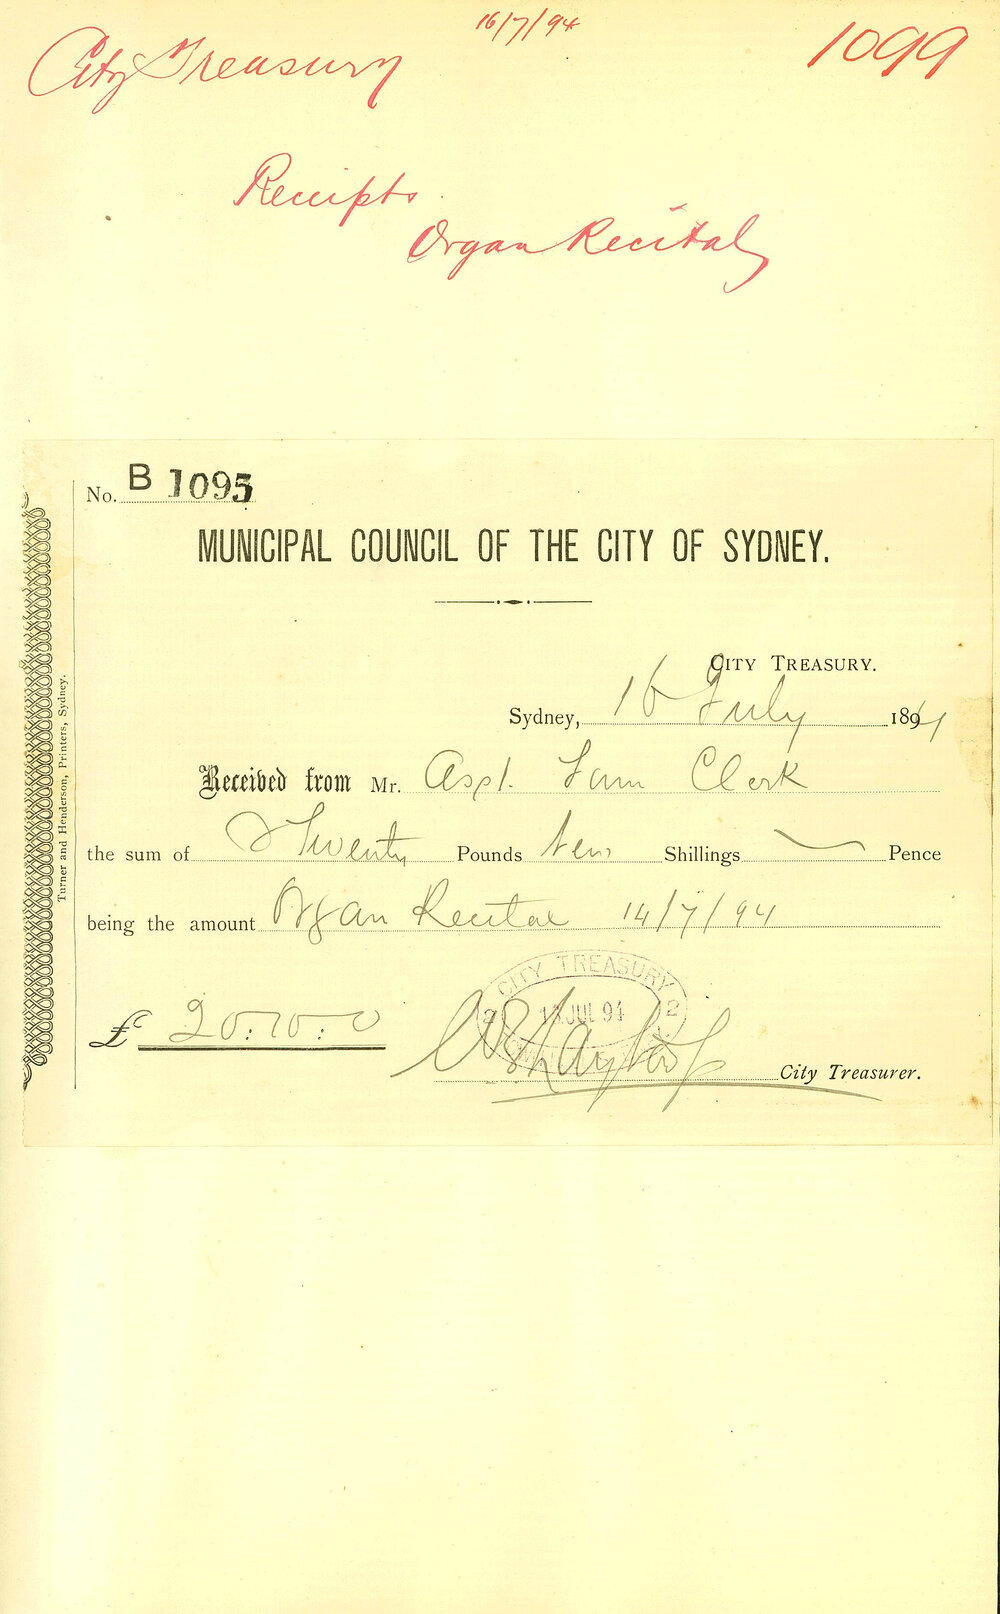 16/7/94
City Treasury
1099
Receipts
Organ Recital
No. B 1095
MUNICIPAL COUNCIL OF THE CITY OF SYDNEY.
CITY TREASURY.
Sydney, 16 July 1894
Received from Mr. Asst. Town Clerk
the sum of Twenty Pounds ten Shillings Pence
being the amount Organ Recital 14/7/94
£ 20:10:0
CITY TREASURY
2 JUL 94 2
City Treasurer.
Turner and Henderson, Printers, Sydney.